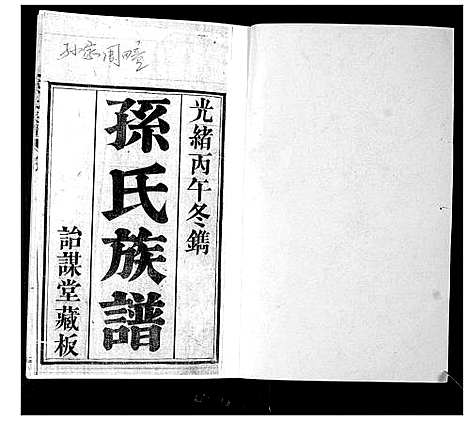 孙宗周
光緒丙午冬鐫
孫氏族譜
詒謀堂藏板